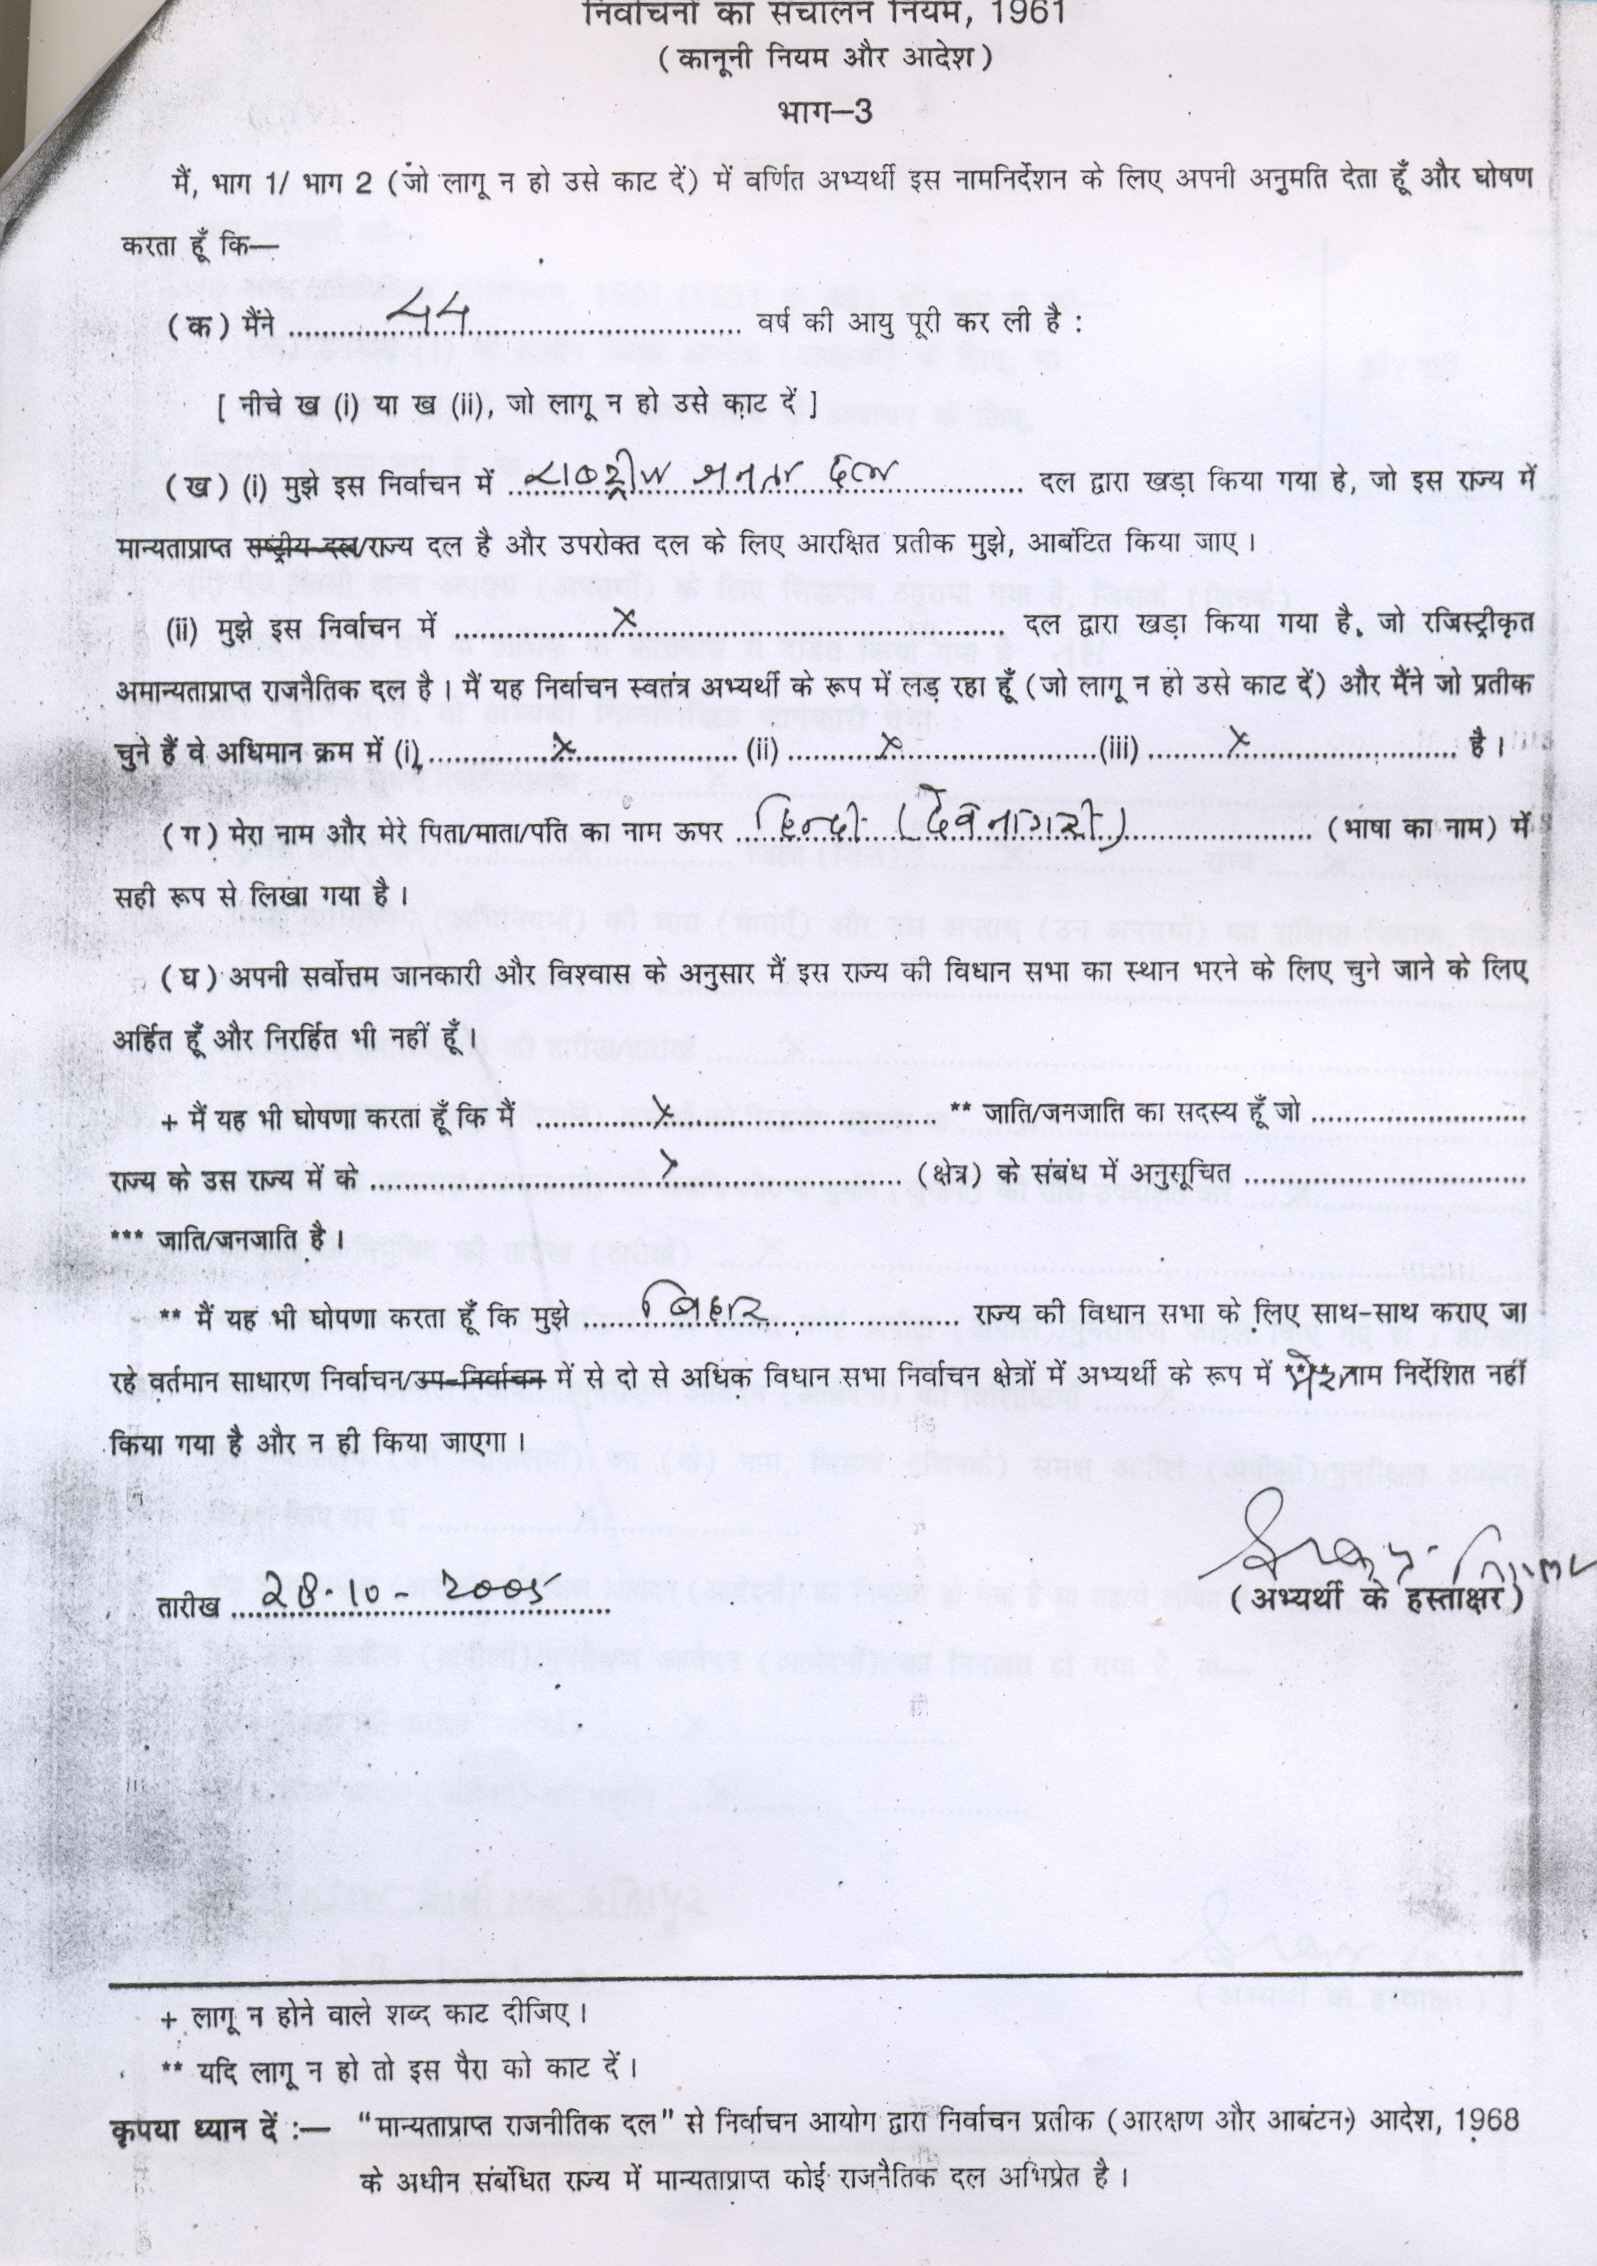 निर्वाचनों का संचालन नियम, 1961
(कानूनी नियम और आदेश)
भाग—3
मैं, भाग 1/ भाग 2 (जो लागू न हो उसे काट दें) में वर्णित अभ्यर्थी इस नामनिर्देशन के लिए अपनी अनुमति देता हूँ और घोषण
करता हूँ कि—
(क) मैंने 44 वर्ष की आयु पूरी कर ली है :
[ नीचे ख (i) या ख (ii), जो लागू न हो उसे काट दें ]
(ख) (i) मुझे इस निर्वाचन में राष्ट्रीय जनता दल दल द्वारा खड़ा किया गया हे, जो इस राज्य में
मान्यताप्राप्त राष्ट्रीय दल/राज्य दल है और उपरोक्त दल के लिए आरक्षित प्रतीक मुझे, आबंटित किया जाए।
(ii) मुझे इस निर्वाचन में x दल द्वारा खड़ा किया गया है, जो रजिस्ट्रीकृत
अमान्यताप्राप्त राजनैतिक दल है। मैं यह निर्वाचन स्वतंत्र अभ्यर्थी के रूप में लड़ रहा हूँ (जो लागू न हो उसे काट दें) और मैंने जो प्रतीक
चुने हैं वे अधिमान क्रम में (i) x (ii) x (iii) x है।
(ग) मेरा नाम और मेरे पिता/माता/पति का नाम ऊपर हिन्दी (देवनागरी) (भाषा का नाम) में
सही रूप से लिखा गया है।
(घ) अपनी सर्वोत्तम जानकारी और विश्वास के अनुसार मैं इस राज्य की विधान सभा का स्थान भरने के लिए चुने जाने के लिए
अर्हित हूँ और निरर्हित भी नहीं हूँ।
+ मैं यह भी घोषणा करता हूँ कि मैं x ** जाति/जनजाति का सदस्य हूँ जो
राज्य के उस राज्य में के x (क्षेत्र) के संबंध में अनुसूचित
*** जाति/जनजाति है।
** मैं यह भी घोपणा करता हूँ कि मुझे बिहार राज्य की विधान सभा के लिए साथ-साथ कराए जा
रहे वर्तमान साधारण निर्वाचन/उप-निर्वाचन में से दो से अधिक विधान सभा निर्वाचन क्षेत्रों में अभ्यर्थी के रूप में नाम निर्देशित नहीं
किया गया है और न ही किया जाएगा।
तारीख 28-10-2005
(अभ्यर्थी के हस्ताक्षर)
+ लागू न होने वाले शब्द काट दीजिए।
** यदि लागू न हो तो इस पैरा को काट दें।
कृपया ध्यान दें :— “मान्यताप्राप्त राजनीतिक दल” से निर्वाचन आयोग द्वारा निर्वाचन प्रतीक (आरक्षण और आबंटन) आदेश, 1968
के अधीन संबंधित राज्य में मान्यताप्राप्त कोई राजनैतिक दल अभिप्रेत है।